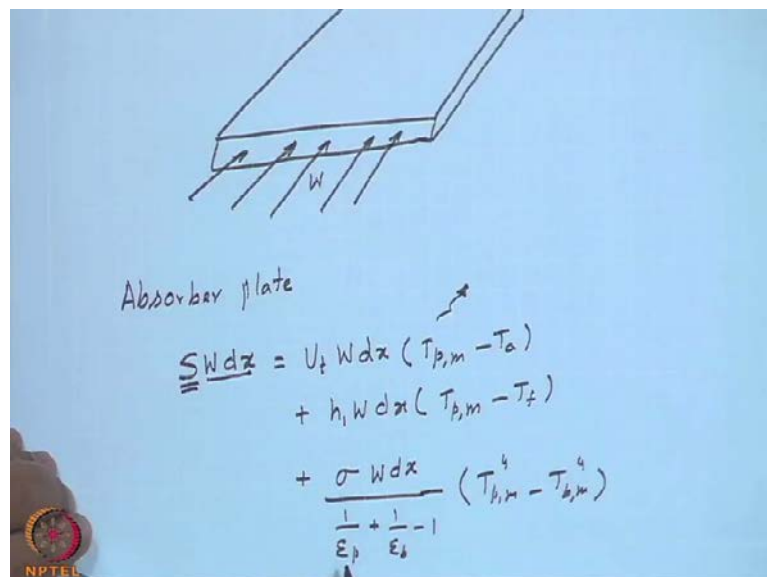 W
Absorber plate
S W dx = U_t W dx (T_{p,m} - T_a)
+ h_1 W dx (T_{p,m} - T_f)
+ σ W dx / (1/ε_p + 1/ε_b - 1) (T_{p,m}^4 - T_{b,m}^4)
NPTEL